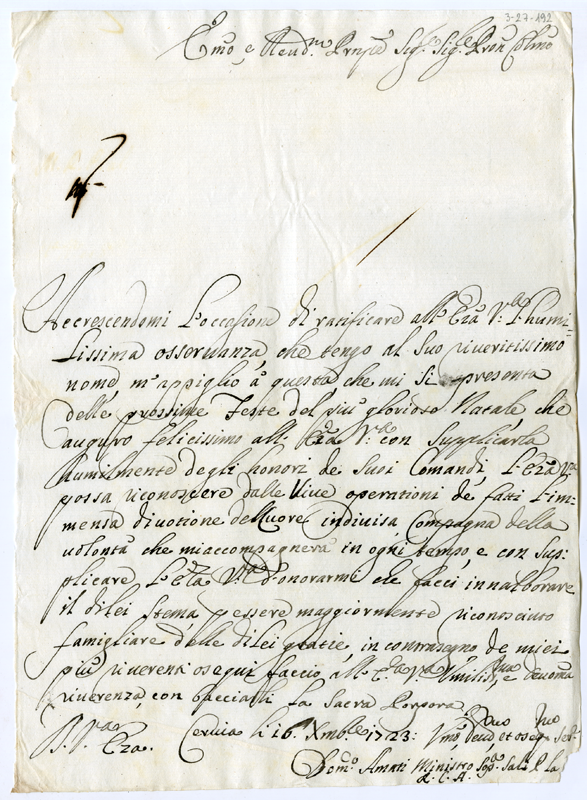 3-27-192
Emo, e Reud.mo Prnpe Sig.r Sig.r Pron Colmo
Accrescendomi l'occasione di ratificare all'Eza V.ra l'humi-
lissima osseruanza, che tengo al suo riueritissimo
nome, m'appiglio à questa che mi si presenta
delle prossime Feste del più glorioso Natale, che
auguro felicissimo all' Eza V.ra con supplicarla
humilmente degli honori de suoi Comandi, l'Eza V.ra
possa riconoscere dalle viue operationi de fatti l'im-
mensa diuotione del Cuore indiuisa Compagna della
volontà che mi accompagnerà in ogni tempo, e con sup-
plicare l'Eza V.ra d'onorarmi che facci innalborare
il di lei stema p essere maggiormente riconosciuto
famigliare delle di lei gratie, in contrasegno de miei
più riuerenti osequi faccio all' Eza V.ra humiliss.ma e deuotma
riuerenza, con bacciarli la Sacra Porpora
D. V.ra Eza. Ceruia li 16. Xmbre 1723:
Vmo, deuo, et oseq. Ser.
Dom.o Amati Ministro Sali